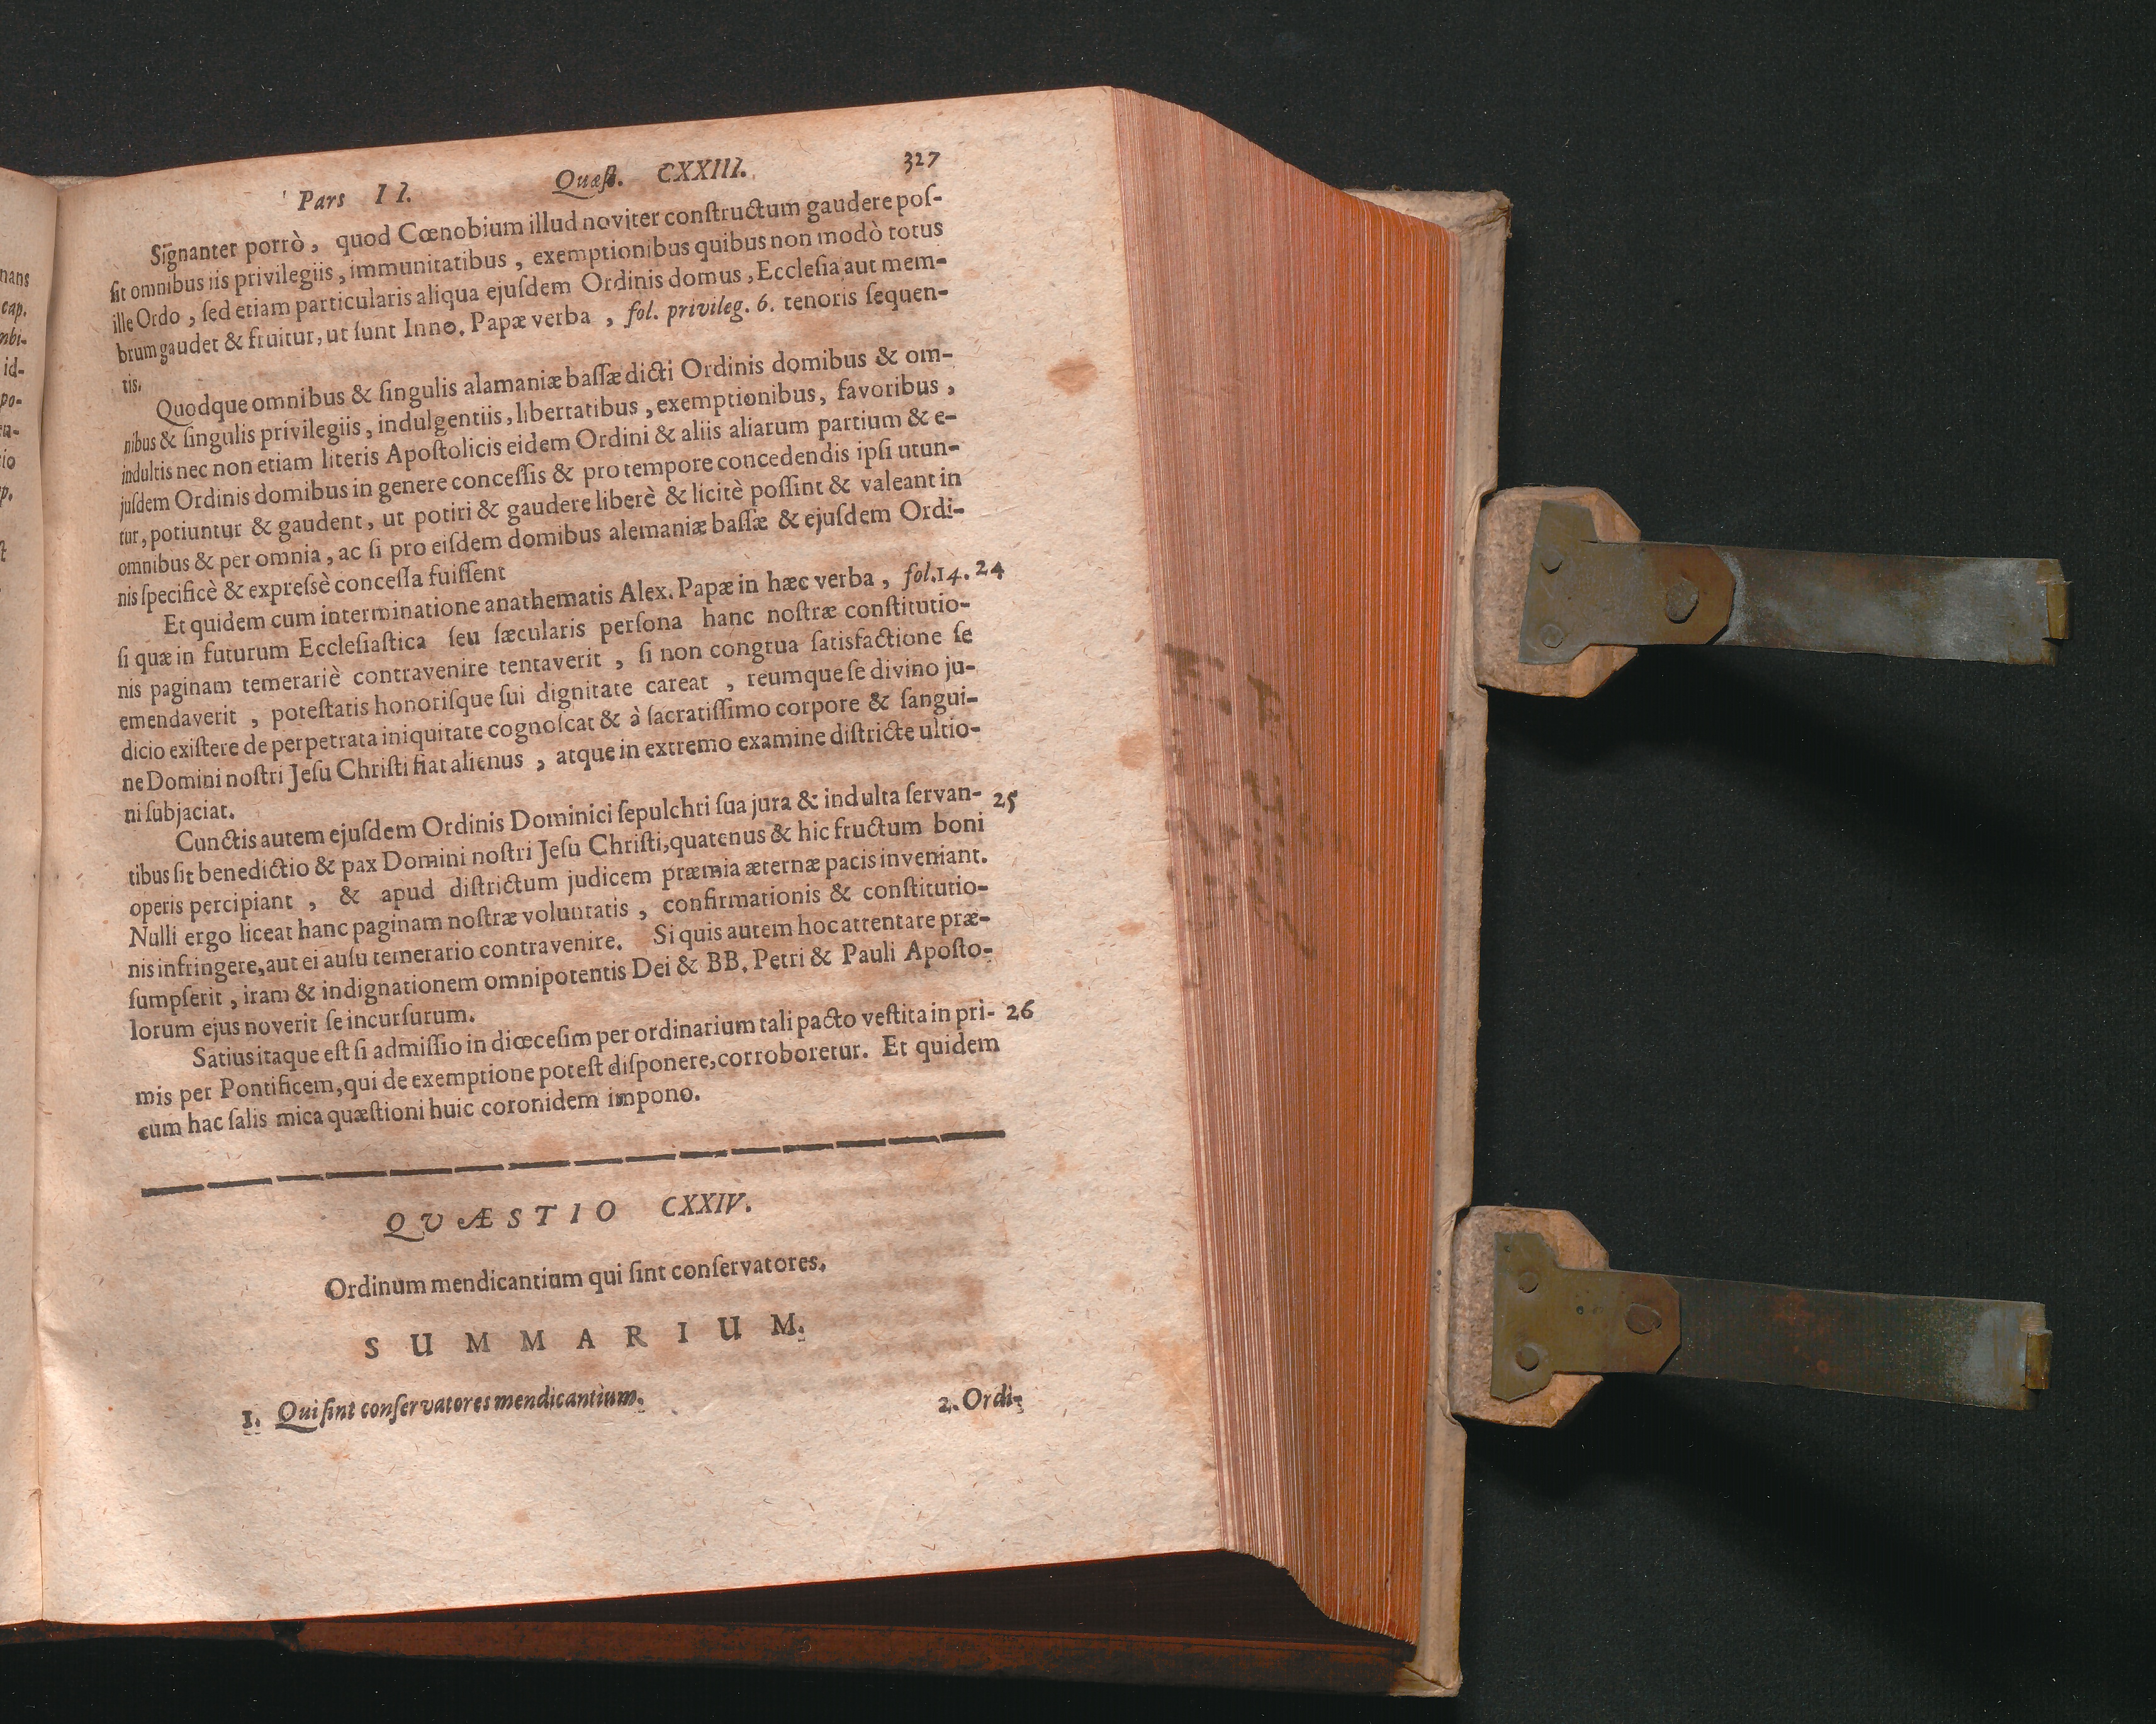 nans
cap.
mbi-
id-
po-
io
p.
Pars II. Quæst. CXXIII. 327
Signanter porrò, quod Cœnobium illud noviter constructum gaudere pos-
sit omnibus iis privilegiis, immunitatibus, exemptionibus quibus non modò totus
ille Ordo, sed etiam particularis aliqua ejusdem Ordinis domus, Ecclesia aut mem-
brum gaudet & fruitur, ut sunt Inno. Papæ verba, fol. privileg. 6. tenoris sequen-
tis.
Quodque omnibus & singulis alamaniæ bassæ dicti Ordinis domibus & om-
nibus & singulis privilegiis, indulgentiis, libertatibus, exemptionibus, favoribus,
indultis nec non etiam literis Apostolicis eidem Ordini & aliis aliarum partium & e-
jusdem Ordinis domibus in genere concessis & pro tempore concedendis ipsi utun-
tur, potiuntur & gaudent, ut potiri & gaudere liberè & licitè possint & valeant in
omnibus & per omnia, ac si pro eisdem domibus alemaniæ bassæ & ejusdem Ordi-
nis specificè & expressè concessa fuissent
Et quidem cum interminatione anathematis Alex. Papæ in hæc verba, fol. 14. 24
si quæ in futurum Ecclesiastica seu sæcularis persona hanc nostræ constitutio-
nis paginam temerariè contravenire tentaverit, si non congrua satisfactione se
emendaverit, potestatis honorisque sui dignitate careat, reumque se divino ju-
dicio existere de perpetrata iniquitate cognoscat & à sacratissimo corpore & sangui-
ne Domini nostri Jesu Christi fiat alienus, atque in extremo examine districte ultio-
ni subjaciat.
Cunctis autem ejusdem Ordinis Dominici sepulchri sua jura & indulta servan- 25
tibus sit benedictio & pax Domini nostri Jesu Christi, quatenus & hic fructum boni
operis percipiant, & apud districtum judicem præmia æternæ pacis inveniant.
Nulli ergo liceat hanc paginam nostræ voluntatis, confirmationis & constitutio-
nis infringere, aut ei ausu temerario contravenire. Si quis autem hoc attentare præ-
sumpserit, iram & indignationem omnipotentis Dei & BB. Petri & Pauli Aposto-
lorum ejus noverit se incursurum.
Satius itaque est si admissio in diœcesim per ordinarium tali pacto vestita in pri- 26
mis per Pontificem, qui de exemptione potest disponere, corroboretur. Et quidem
cum hac salis mica quæstioni huic coronidem impono.
QVÆSTIO CXXIV.
Ordinum mendicantium qui sint conservatores.
SUMMARIUM.
1. Qui sint conservatores mendicantium.
2. Ordi-